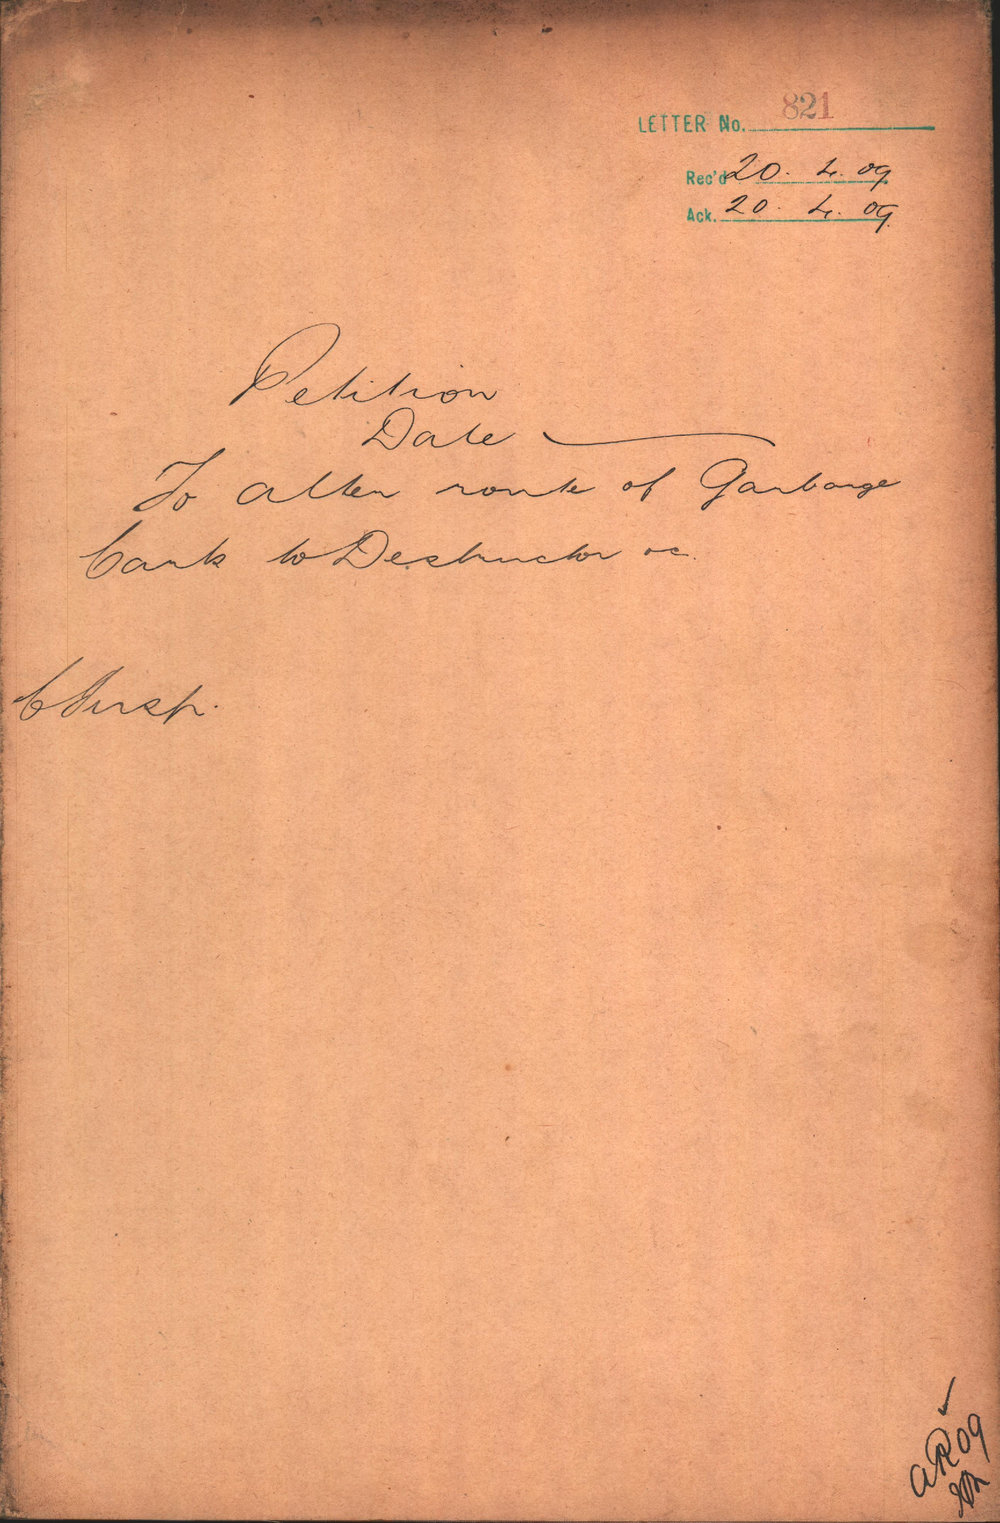 LETTER No. 821
Rec'd 20. 4. 09
Ack. 20. 4. 09
Petition
Date
To alter route of Garbage
Carts to Destructor &c.
C Insp.